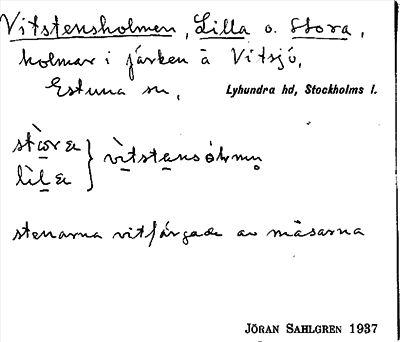 Vitstensholmen, Lilla o. Stora,
holmar i fjärden å Vitsjö,
Estuna sn,
Lyhundra hd, Stockholms l.
stenarna vitfärgade av måsarna
JÖRAN SAHLGREN 1937